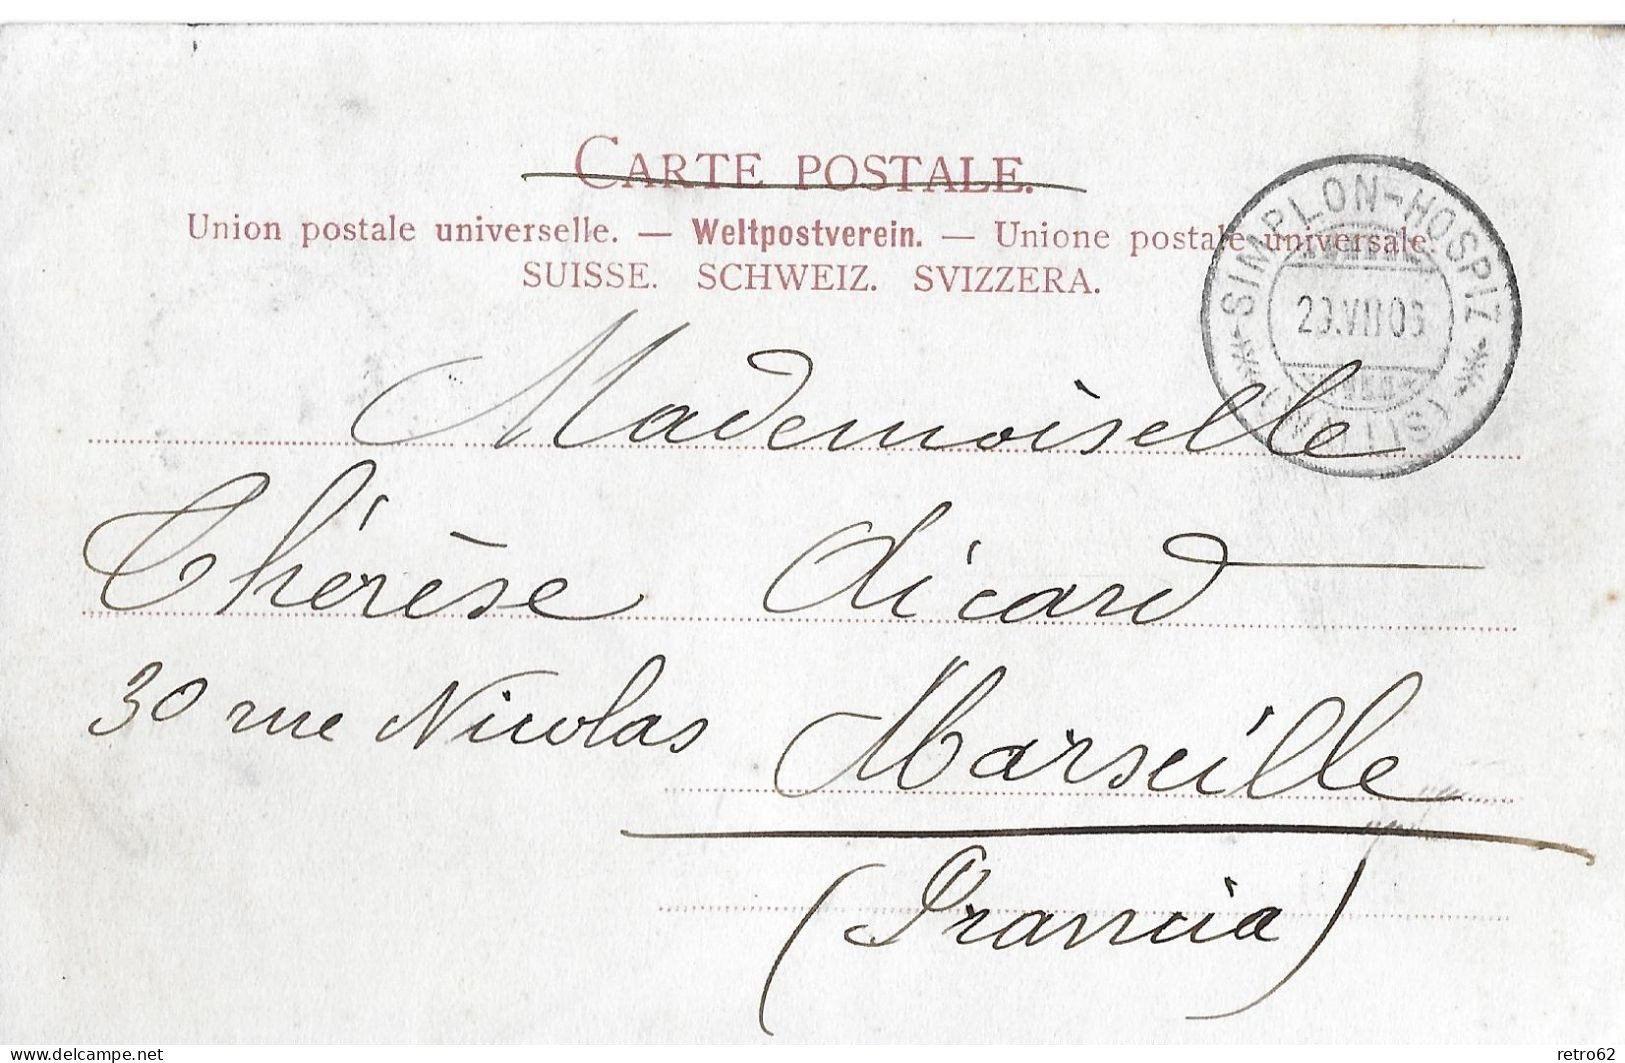 CARTE POSTALE.
Union postale universelle. — Weltpostverein. — Unione postale universale.
SUISSE. SCHWEIZ. SVIZZERA.
SIMPLON-HOSPIZ
29.VII 05
Mademoiselle
Thérèse Dicard
30 rue Nicolas
Marseille
(Francia)
delcampe.net
retro62